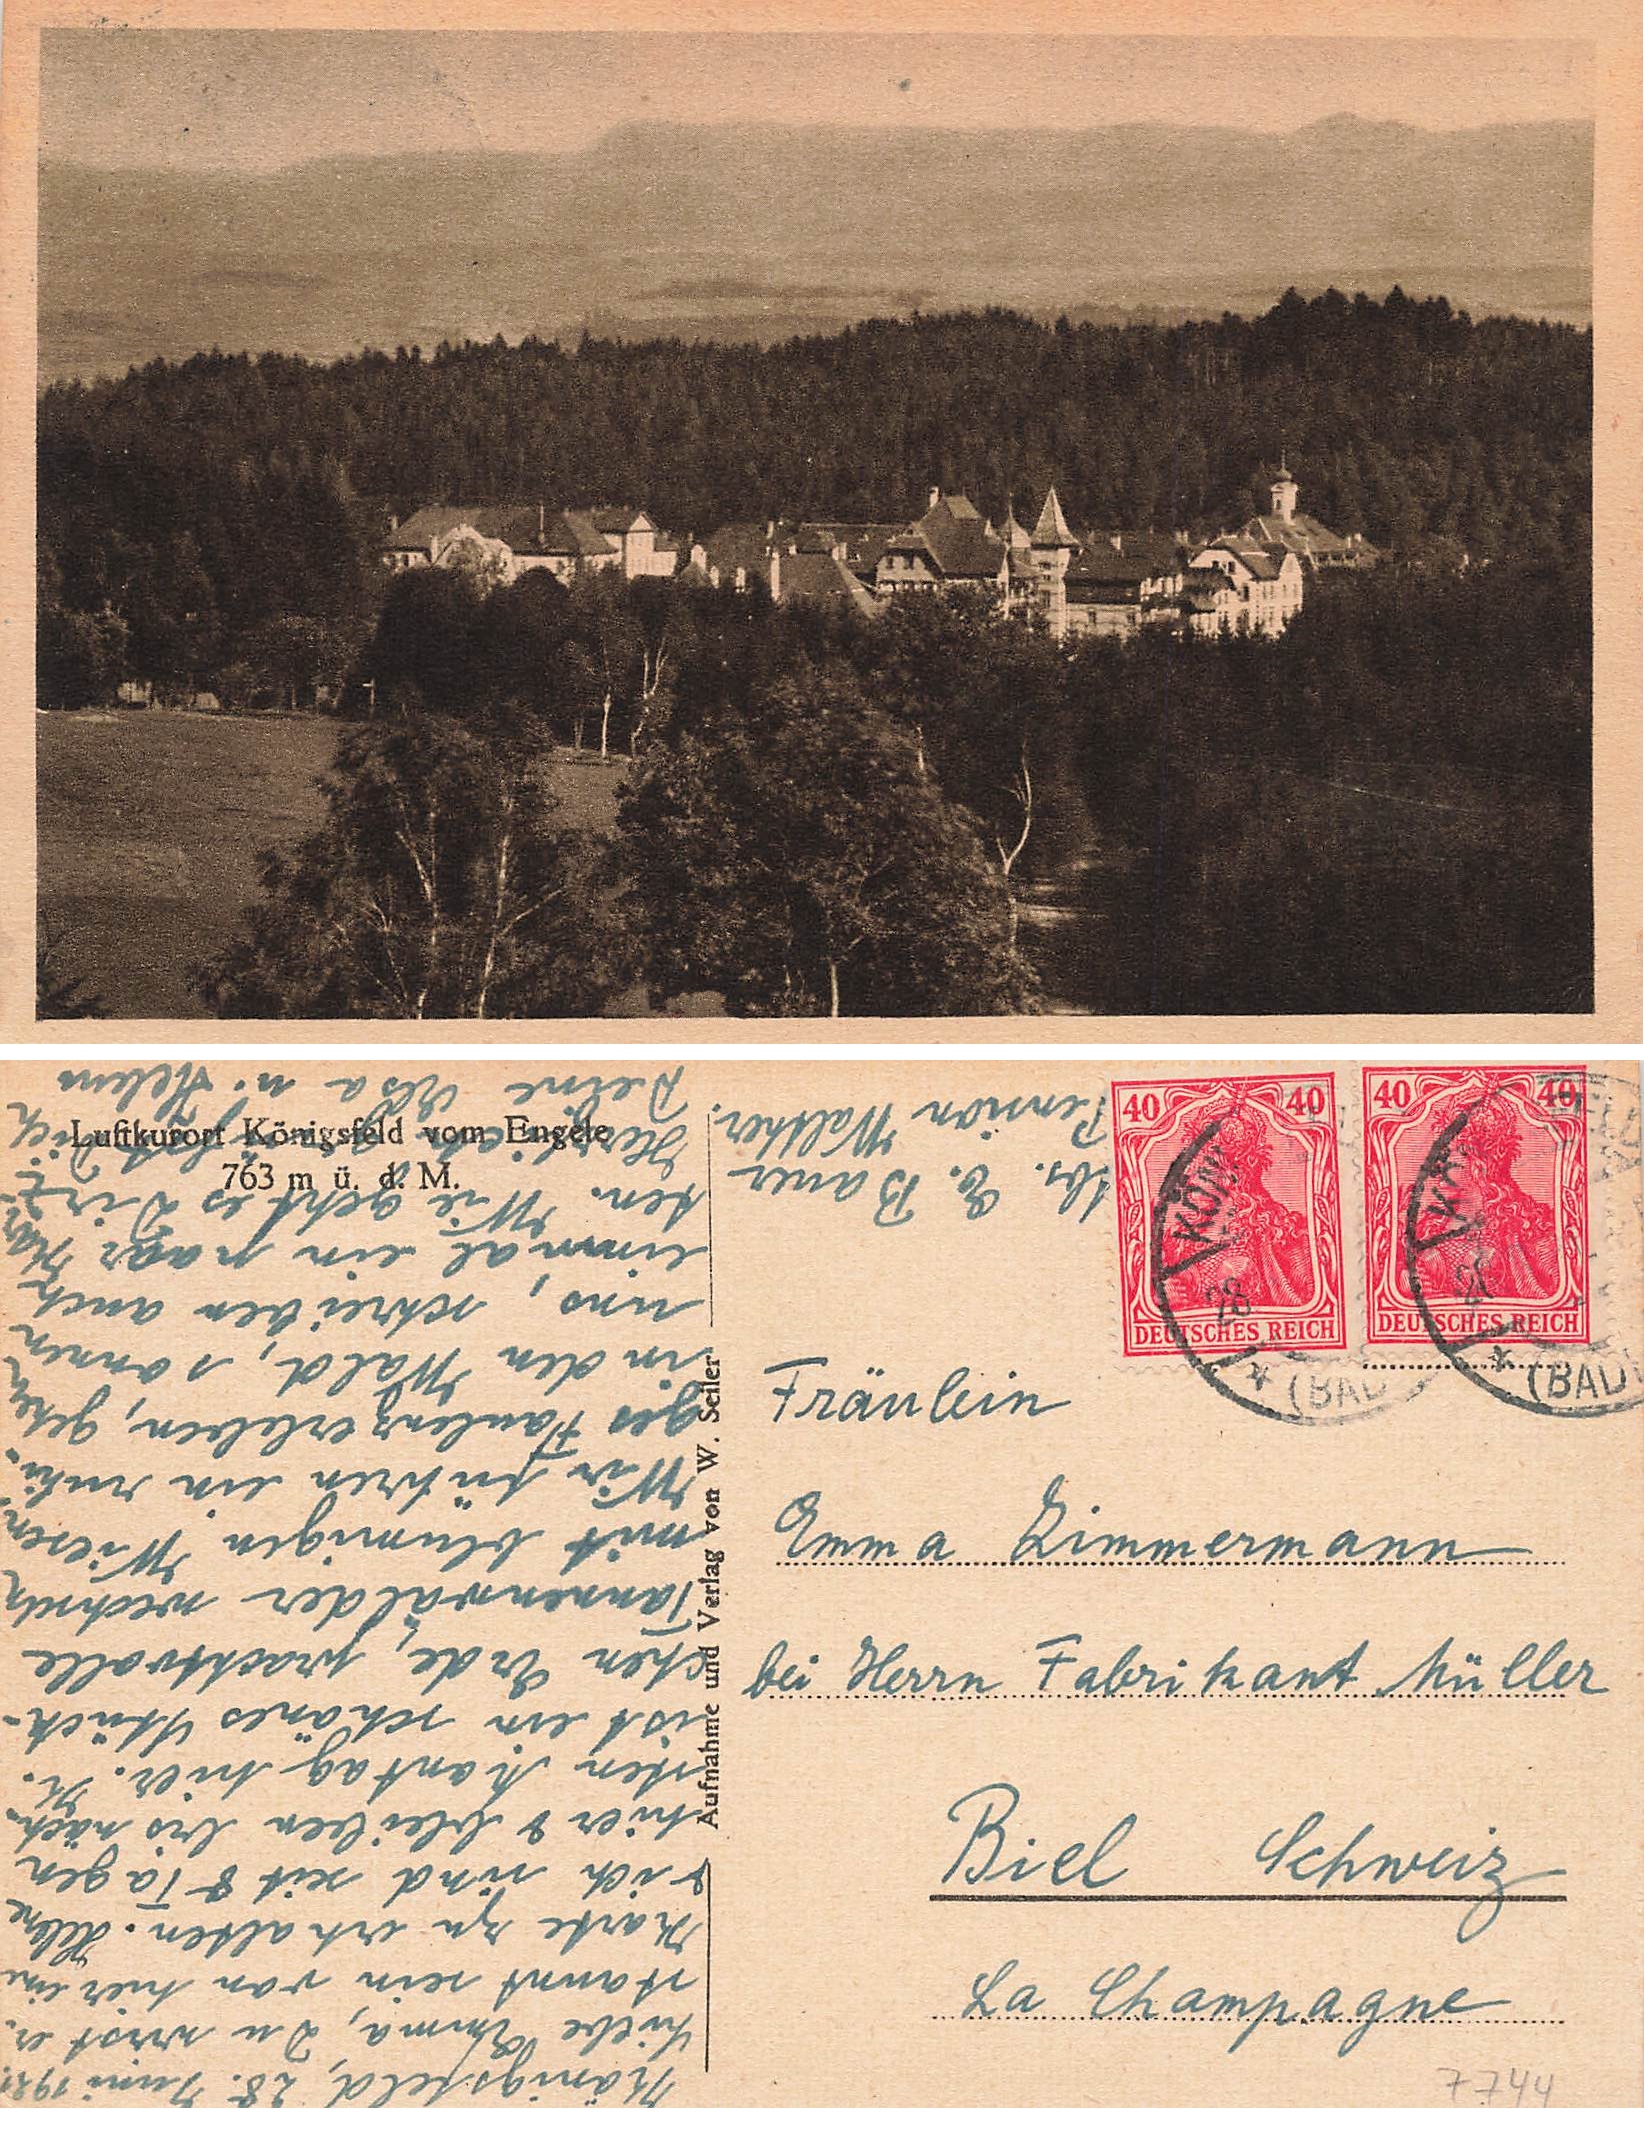 Luftkurort Königsfeld vom Engele
763 m ü. d. M.
Aufnahme und Verlag von W. Seiler
Königsfeld, 28. Juni 192
Liebe Emma, Du wirst er-
staunt sein von hier eine
Karte zu erhalten. Helene
& ich sind seit 8 Tagen
hier & bleiben bis näch-
sten Montag hier. K.
ist ein schönes Stück-
chen Erde, prachtvolle
Tannenwälder wechseln
mit blumigen Wiesen.
Wir führen ein ruhi-
ges Faulenzerleben, gehen
in den Wald, sonnen
uns, schreiben auch
einmal ein paar Kar-
ten. Wie geht es Dir?
Herzlichst grüsst Dich
Deine Elsa u. Helene
Abs. E. Bauer
Pension Walther.
40 40
DEUTSCHES REICH
40 40
DEUTSCHES REICH
KÖNI
28
* (BAD
28
* (BAD
Fräulein
Emma Zimmermann
bei Herrn Fabrikant Müller
Biel Schweiz
La Champagne
7744